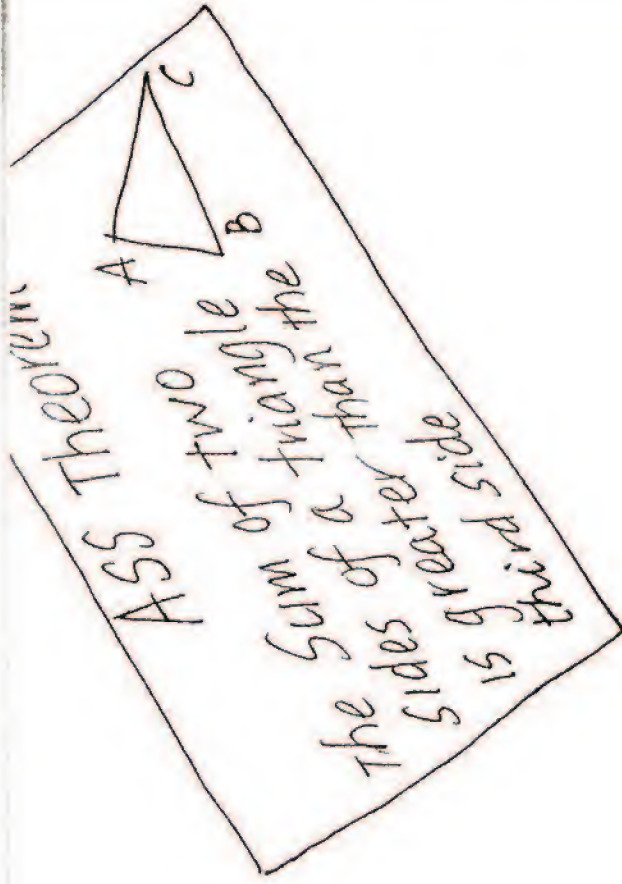 ASS Theorem
A
B
C
The sum of two
sides of a triangle
is greater than the
third side